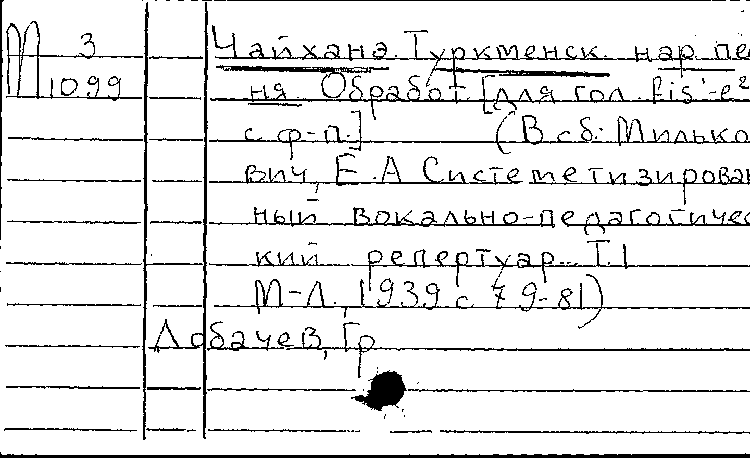 М 3 Чайхана. Туркменск. нар. пе
1099 ня. Обработ. [для гол. fis'-e²
с ф-п.] (В сб.: Милько
вич, Е.А Систематизирован
ный вокально-педагогичес
кий репертуар. Т.1
М-Л., 1939 с. 79-81)
Лобачев, Гр